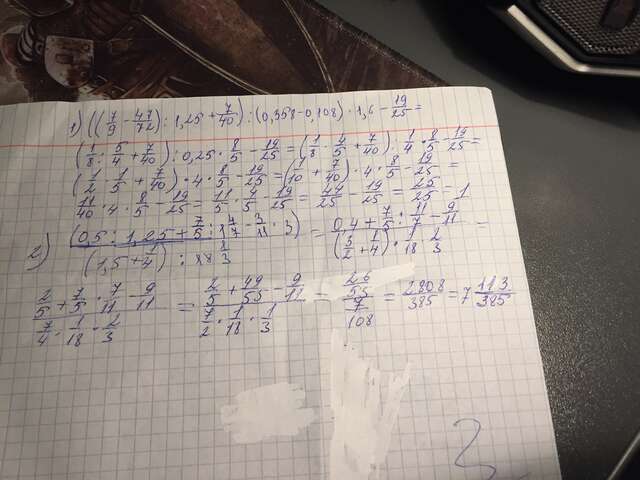 1) ((7/9 - 47/72) : 1,25 + 7/40) : (0,358 - 0,108) · 1,6 - 19/25 =
(1/8 : 5/4 + 7/40) : 0,25 · 8/5 - 19/25 = (1/8 · 4/5 + 7/40) · 1/4 · 8/5 - 19/25 =
(1/2 · 1/5 + 7/40) · 4 · 8/5 - 19/25 = (1/10 + 7/40) · 4 · 8/5 - 19/25 =
11/40 · 4 · 8/5 - 19/25 = 11/5 · 4/5 - 19/25 = 44/25 - 19/25 = 25/25 = 1
2) (0,5 : 1,25 + 7/5 : 1 4/7 - 3/11 · 3) / (1,5 + 1/4) : 18 1/3 = 0,4 + 7/5 : 11/7 - 9/11 / (3/2 + 1/4) · 1/18 · 2/3 =
2/5 + 7/5 · 7/11 - 9/11 / 7/4 · 1/18 · 2/3 = 2/5 + 49/55 - 9/11 / 7/2 · 1/18 · 1/3 = 26/55 / 7/108 = 2808/385 = 7 113/385